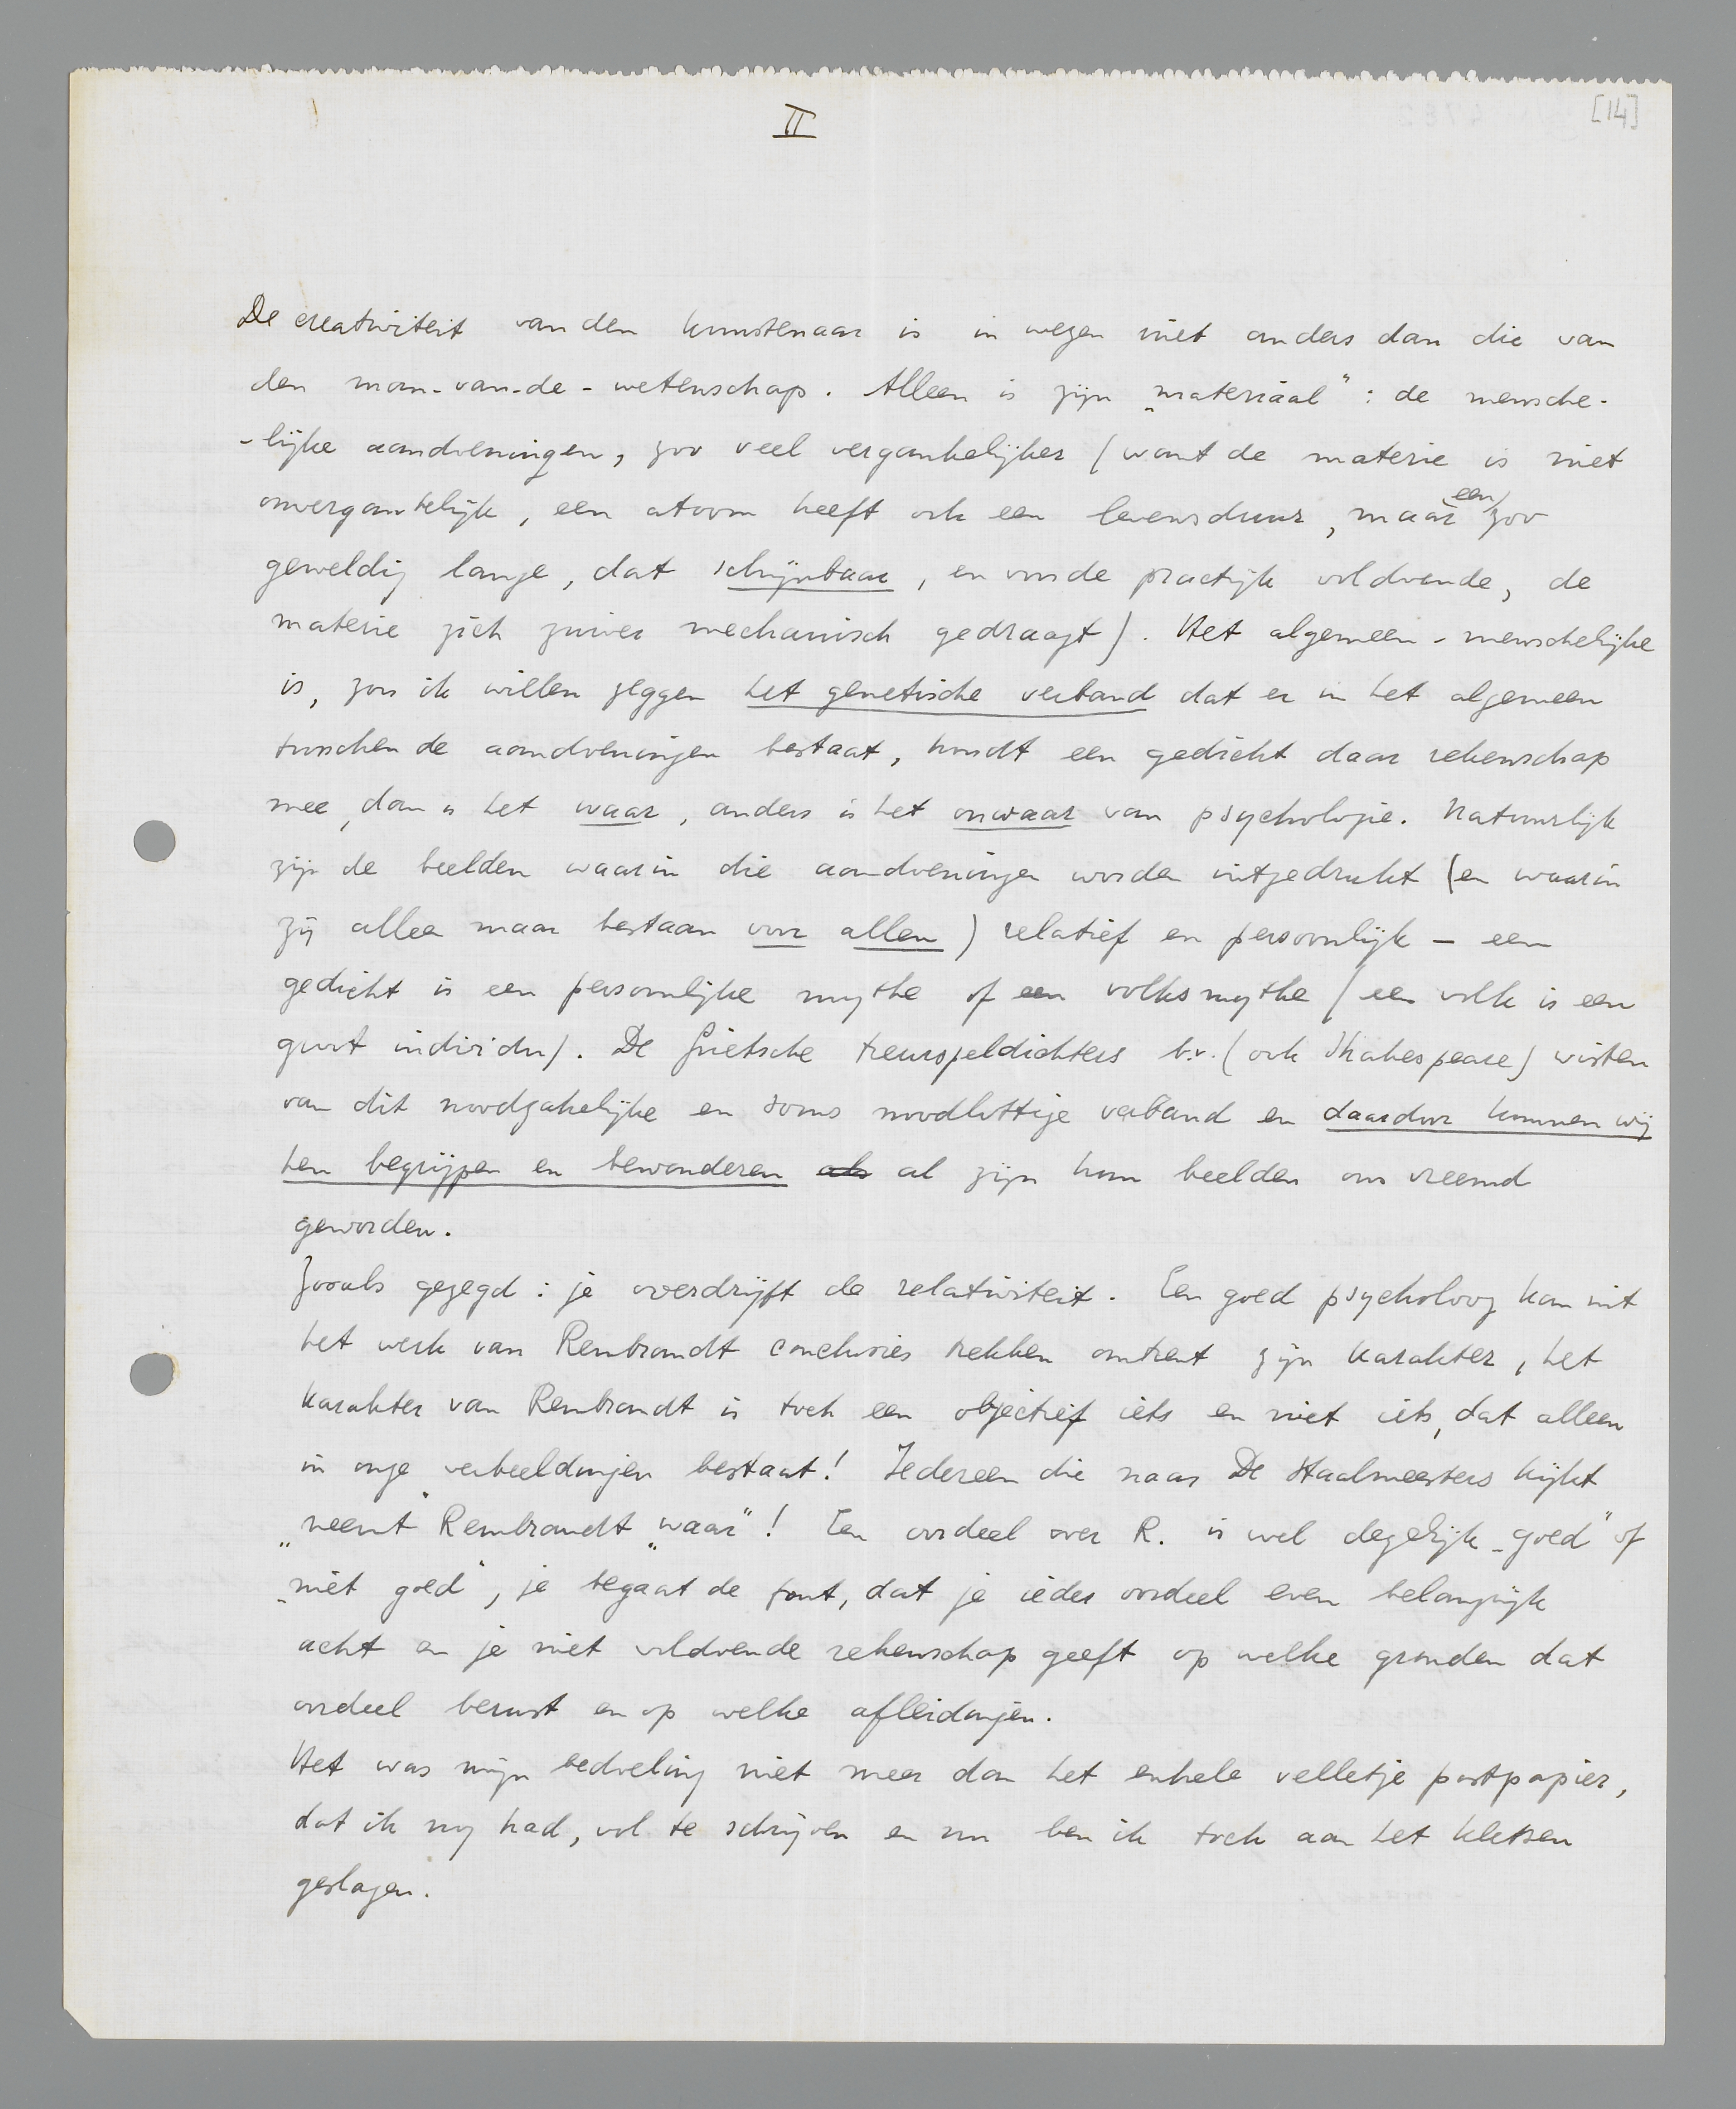 II
[14]
De creativiteit van den kunstenaar is in wezen niet anders dan die van
den man-van-de-wetenschap. Alleen is zijn „materiaal”: de mensche-
-lijke aandoeningen, zoo veel vergankelijker (want de materie is niet
onvergankelijk, een atoom heeft ook een levensduur, maar een zoo
geweldig lange, dat schijnbaar, en voor de practijk voldoende, de
materie zich zuiver mechanisch gedraagt). Het algemeen-menschelijke
is, zou ik willen zeggen het genetische verband dat er in het algemeen
tusschen de aandoeningen bestaat, houdt een gedicht daar rekenschap
mee, dan is het waar, anders is het onwaar van psychologie. Natuurlijk
zijn de beelden waarin die aandoeningen worden uitgedrukt (en waarin
zij alleen maar bestaan voor allen) relatief en persoonlijk – een
gedicht is een persoonlijke mythe of een volksmythe (een volk is een
groot individu). De Grieksche treurspeldichters b.v. (ook Shakespeare) wisten
van dit noodzakelijke en soms noodlottige verband en daardoor kunnen wij
hen begrijpen en bewonderen als al zijn hun beelden ons vreemd
geworden.
Zooals gezegd: je overdrijft de relativiteit. Een goed psycholoog kan uit
het werk van Rembrandt conclusies trekken omtrent zijn karakter, het
karakter van Rembrandt is toch een objectief iets en niet iets, dat alleen
in onze verbeeldingen bestaat! Iedereen die naar De Staalmeesters kijkt
„neemt” Rembrandt „waar”! Een oordeel over R. is wel degelijk „goed” of
„niet goed”, je begaat de fout, dat je ieder oordeel even belangrijk
acht en je niet voldoende rekenschap geeft op welke gronden dat
oordeel berust en op welke afleidingen.
Het was mijn bedoeling niet meer dan het enkele velletje postpapier,
dat ik nog had, vol te schrijven en nu ben ik toch aan het kletsen
geslagen.